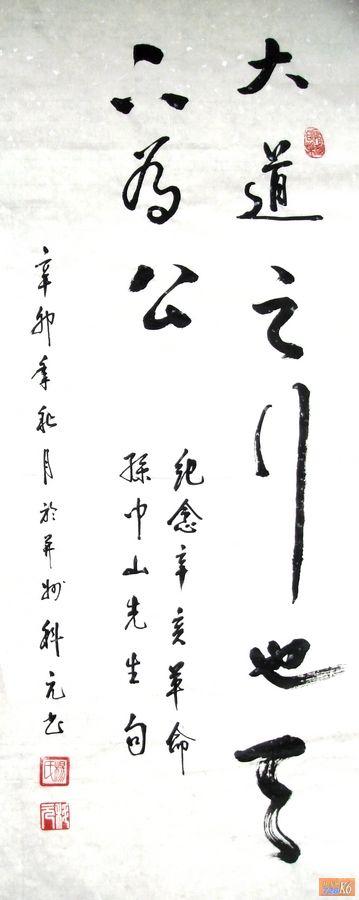 大道之行也天
下為公
紀念辛亥革命
孫中山先生句
辛卯年秋月於并州科元书
K6